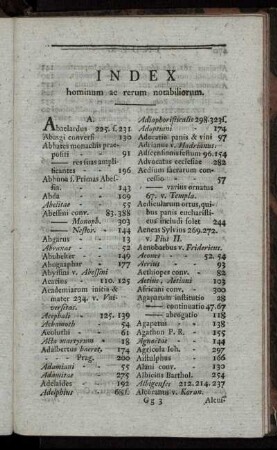 INDEX
hominum ac rerum notabiliorum.
A.
Abaelardus 225. f. 231.
Abasgi conversi 130
Abbates monachis prae-
positi 91
— res suas ampli-
ficantes 196
Abhuna f. Primas Abes-
sin. 143
Abda 109
Abelitae 55
Abessini conv. 83. 388
— Monoph. 303
— Nestor. 144
Abgarus 13
Abraxas 52
Abubeker 149
Abugaphar 177
Abyssini v. Abessini
Acacius 110. 125
Academiarum initia &
mater 234. v. Uni-
versitas.
Acephali 125. 139
Achamoth 54
Acoluthi 61
Acta martyrum 18
Adalbertus haeret. 174
— Prag. 200
Adamiani 55
Adamitae 275
Adelaides 192
Adelphius 68
Adiaphoristicalis 298. 323 f.
Adoptiani 174
Adoratio panis & vini 97
Adrianus v. Hadrianus.
Adscensionis festum 96. 154
Advocatus ecclesiae 282
Aedium sacrarum con-
cessio 57
— varius ornatus
67. v. Templa.
Aedicularum ortus, qui-
bus panis eucharisti-
cus includi solet 244
Aeneas Sylvius 269. 272.
v. Pius II.
Aenobarbus v. Fridericus.
Aeones 52. 54
Aerius 93
Aethiopes conv. 82
Aetius, Aetiani 103
Africani conv. 300
Agaparum institutio 28
— continuatio 47. 67
— abrogatio 118
Agapetus 138
Agathon P. R. 155
Agnoitae 144
Agricola Ioh. 297
Aistulphus 166
Alani conv. 130
Albicius Barthol. 254
Albigenses 212. 214. 237
Alcoranus v. Koran.
Gg 3
Alcui-